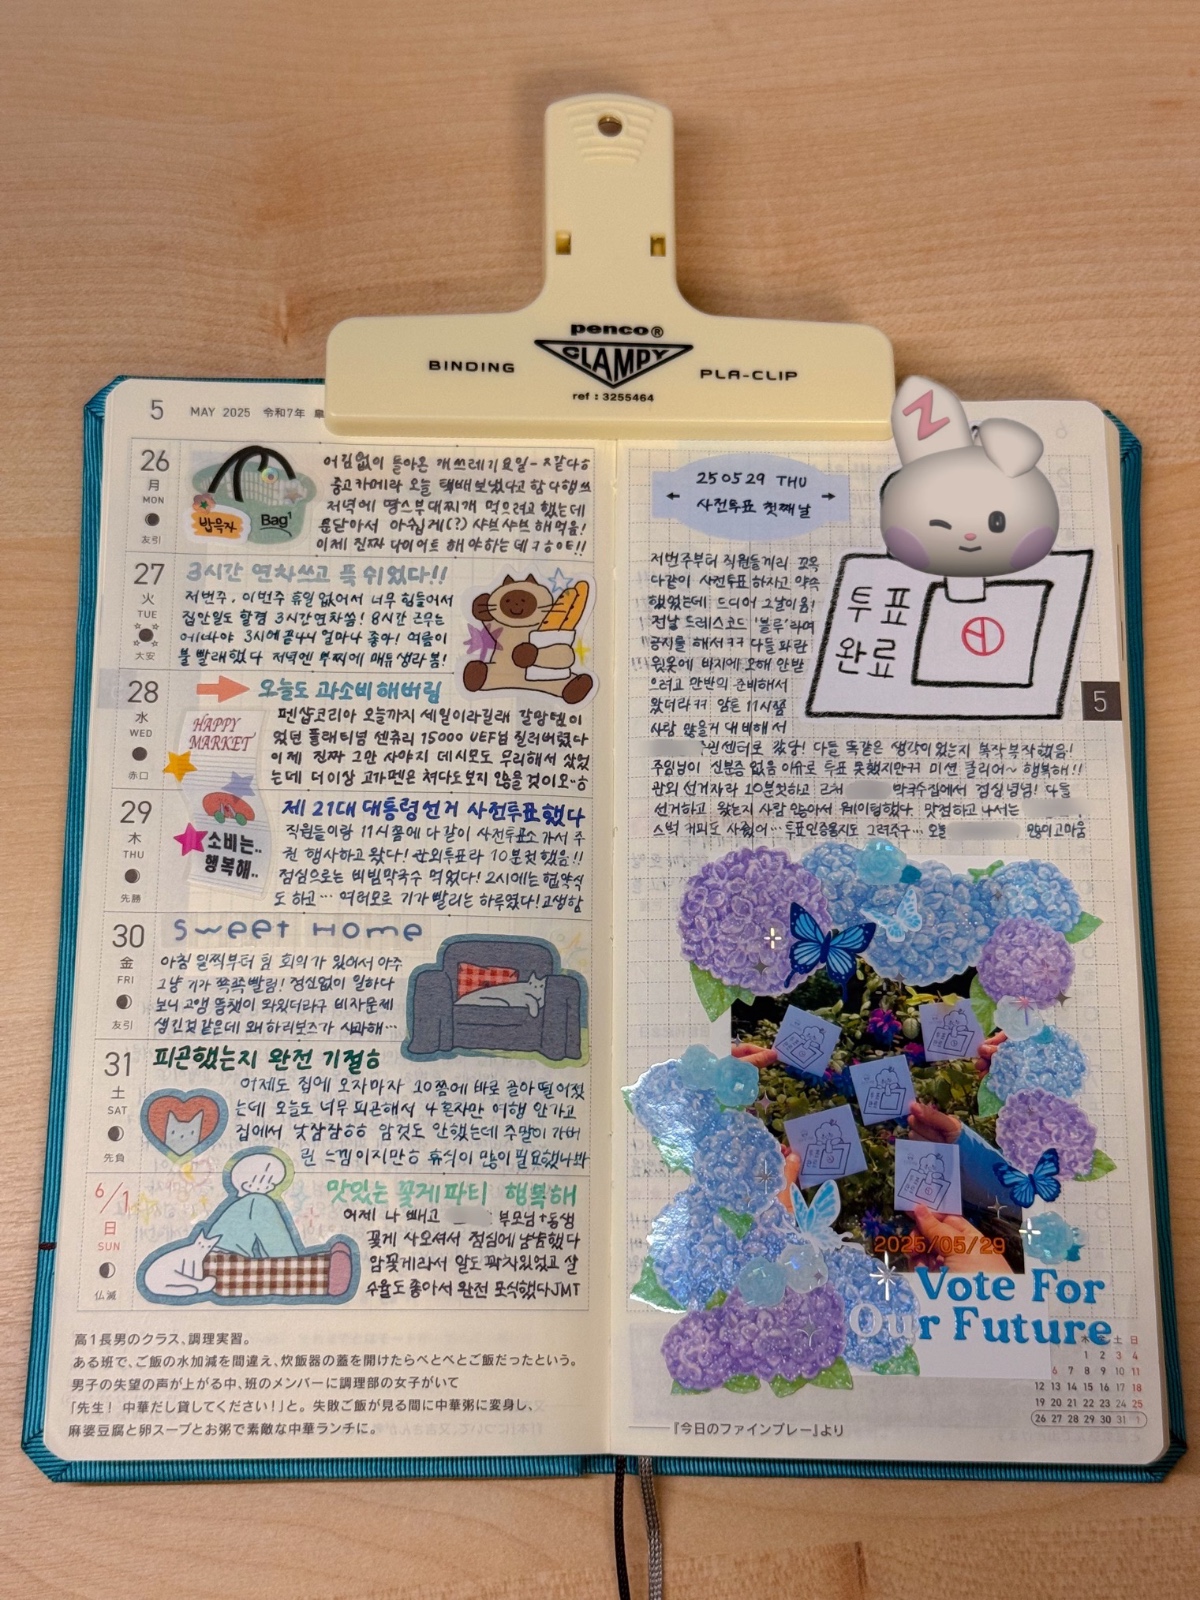 penco®
CLAMPY
BINDING
PLA-CLIP
ref : 3255464
5 MAY 2025 令和7年
26
月
MON
友引
밥묵자
Bag¹
어김없이 돌아온 개쓰레기요일-ㅈ같다ㅎ
중고카메라 오늘 택배 보냈다고 함 다행쓰
저녁에 땅스부대찌개 먹으려고 했는데
문닫아서 아쉽게(?) 샤브샤브 해먹음!
이제 진짜 다이어트 해야하는데ㅋㅎㅇㅌ!!
27
火
TUE
大安
3시간 연차쓰고 푹 쉬었다!!
저번주, 이번주 휴일 없어서 너무 힘들어서
집안일도 할겸 3시간연차씀! 8시간 근무는
3시에 끝나니 얼마나 좋아! 여름이
불 빨래했다 저녁엔
28
水
WED
赤口
오늘도 과소비해버림
HAPPY
MARKET
펜샵코리아 오늘까지 세일이라길래 갈망템이
었던 플래티넘 센츄리 15000 UEF닙 질러버렸다
이제 진짜 그만 사야지 데시모도 무리해서 샀었
는데 더이상 고가펜은 쳐다도보지 않을 것이오-ㅎ
29
木
THU
先勝
소비는..
행복해..
제 21대 대통령선거 사전투표했다
직원들이랑 11시쯤에 다같이 사전투표소 가서 주
권 행사하고 왔다! 관외투표라 10분컷했음!!
점심으로는 비빔막국수 먹었다! 2시에는 협약식
도 하고… 여러모로 기가 빨리는 하루였다! 고생함
30
金
FRI
友引
Sweet Home
아침 일찍부터 팀 회의가 있어서 아주
그냥 기가 쪽쪽빨림! 정신없이 일하다
보니
생긴것 같은데 왜
31
土
SAT
先負
피곤했는지 완전 기절ㅎ
어제도 집에 오자마자 10쯤에 바로 골아떨어졌
는데 오늘도 너무 피곤해서 4혼자만 여행 안가고
집에서 낮잠잠ㅎㅎ 암것도 안했는데 주말이 가버
린 느낌이지만ㅎ 휴식이 많이 필요했나봐
6/1
日
SUN
仏滅
맛있는 꽃게파티 행복해
어제 나 빼고 부모님+동생
꽃게 사오셔서 점심에 냠냠했다
암꽃게라서 알도 꽉차있었고 살
수율도 좋아서 완전 포식했다JMT
高1長男のクラス、調理実習。
ある班で、ご飯の水加減を間違え、炊飯器の蓋を開けたらべとべとご飯だったという。
男子の失望の声が上がる中、班のメンバーに調理部の女子がいて
「先生! 中華だし貸してください!」と。失敗ご飯が見る間に中華粥に変身し、
麻婆豆腐と卵スープとお粥で素敵な中華ランチに。
250529 THU
사전투표 첫째날
Z
투표
완료
저번주부터 직원들끼리 꼬옥
다같이 사전투표 하자고 약속
했었는데 드디어 그날이옴!
전날 드레스코드 '블루'라며
공지를 해서ㅋㅋ 다들 파란
윗옷에 바지에 오해 안받
으려고 만반의 준비해서
왔더라ㅋㅋ 암튼 11시쯤
사람 많을거 대비해서
센터로 갔당! 다들 똑같은 생각이었는지 북작북작했음!
주임님이 신분증 없음 이슈로 투표 못했지만ㅋㅋ 미션 클리어~ 행복해!!
관외 선거자라 10분컷하고 근처 막국수집에서 점심냠냠! 다들
선거하고 왔는지 사람 많아서 웨이팅했다. 맛점하고 나서는
스벅 커피도 사줬어… 투표인증용지도 그려주구… 오늘 많이고마움
5
2025/05/29
Vote For
Our Future
木 金 土 日
1 2 3 4
6 7 8 9 10 11
12 13 14 15 16 17 18
19 20 21 22 23 24 25
26 27 28 29 30 31 1
『今日のファインプレー』より